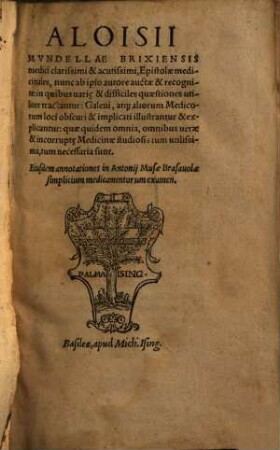 ALOISII
MVNDELLAE BRIXIENSIS
medici clarissimi & acutissimi, Epistolæ medi-
cinales, nunc ab ipso autore auctæ & recogni-
tæ: in quibus uariç & difficiles quæstiones uti-
liter tractantur: Galeni, atq; aliorum Medico-
rum loci obscuri & implicati illustrantur & ex-
plicantur: quæ quidem omnia, omnibus ueræ
& incorruptę Medicinæ studiosis tum utilissi-
ma, tum necessaria sunt.
Eiusdem annotationes in Antonij Musæ Brasauolæ
simplicium medicamentorum examen.
PALMA ISING.
Basileæ, apud Mich. Ising.